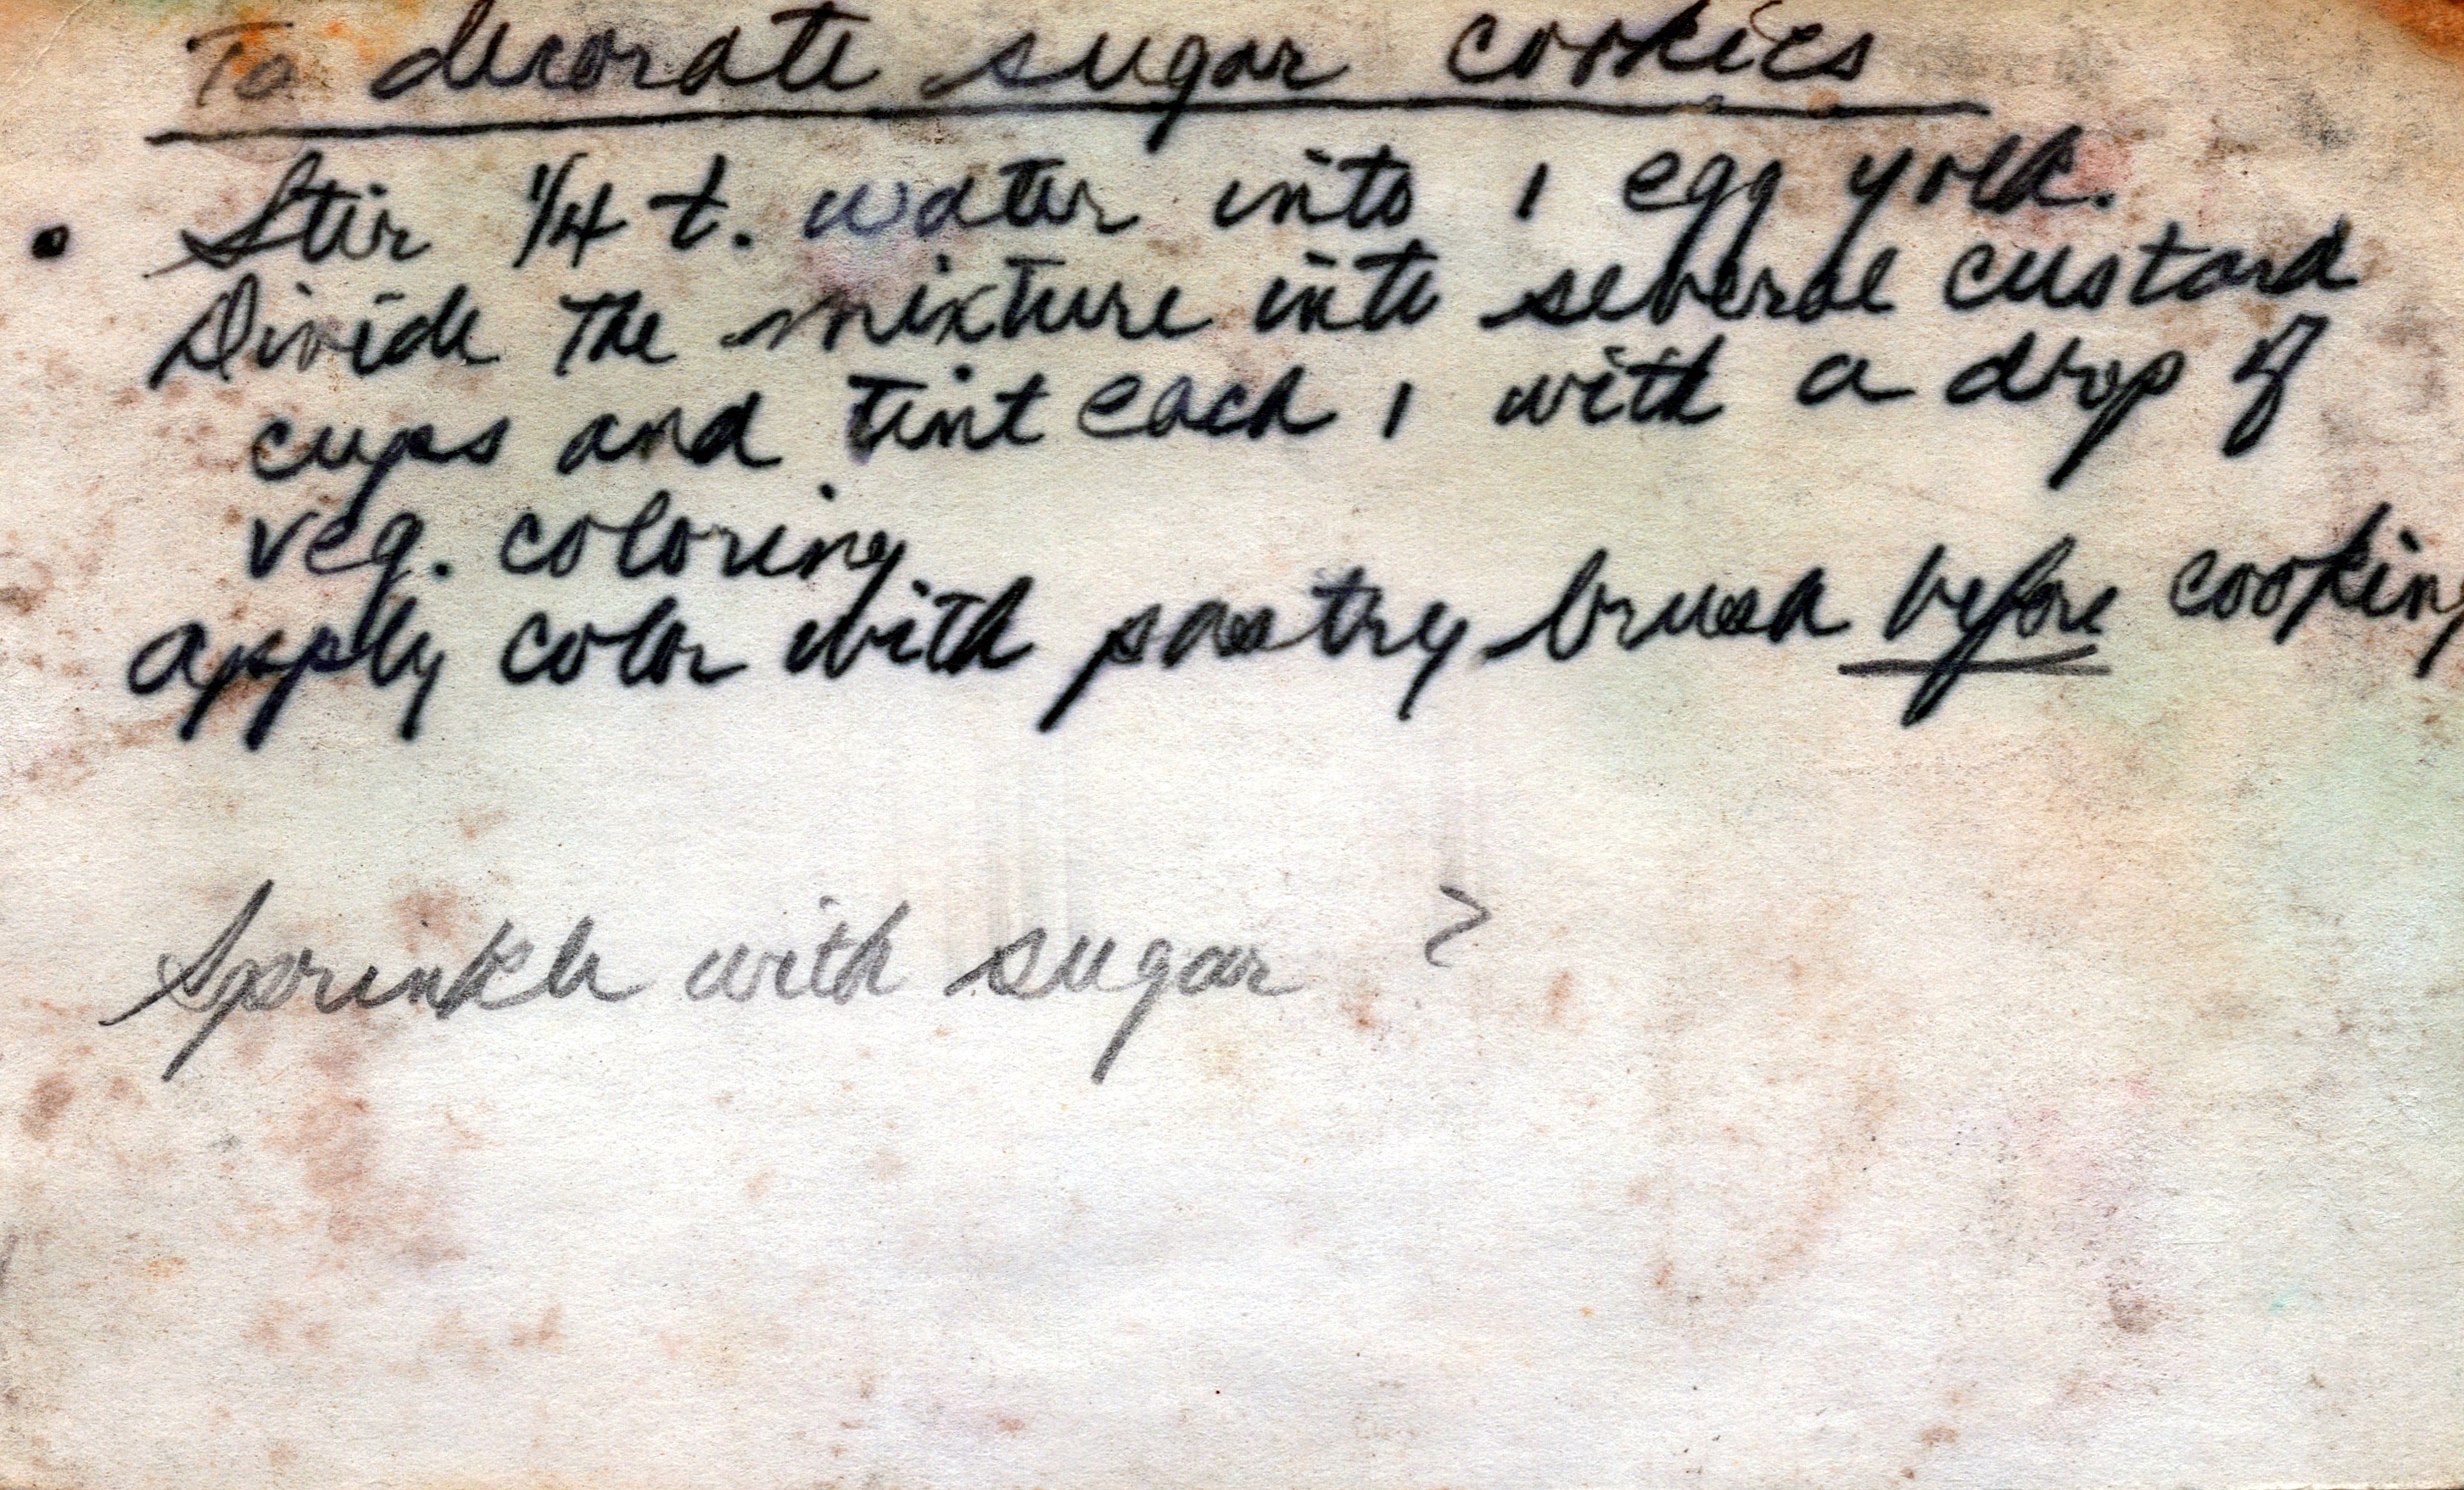 To decorate sugar cookies
• Stir 1/4 t. water into 1 egg yolk.
Divide the mixture into several custard
cups and tint each 1 with a drop of
veg. coloring
apply color with pastry brush before cooking
Sprinkle with sugar ?